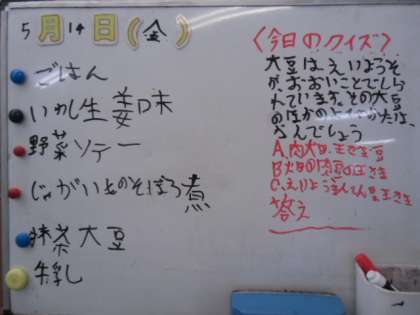 5月14日(金)
ごはん
いわし生姜味
野菜ソテー
じゃがいものそぼろ煮
抹茶大豆
牛乳
〈今日のクイズ〉
大豆は、えいようそ
が、おおいことでしら
れています。その大豆
のほかの
なんでしょう
A.
B.
C.えいよう
答え